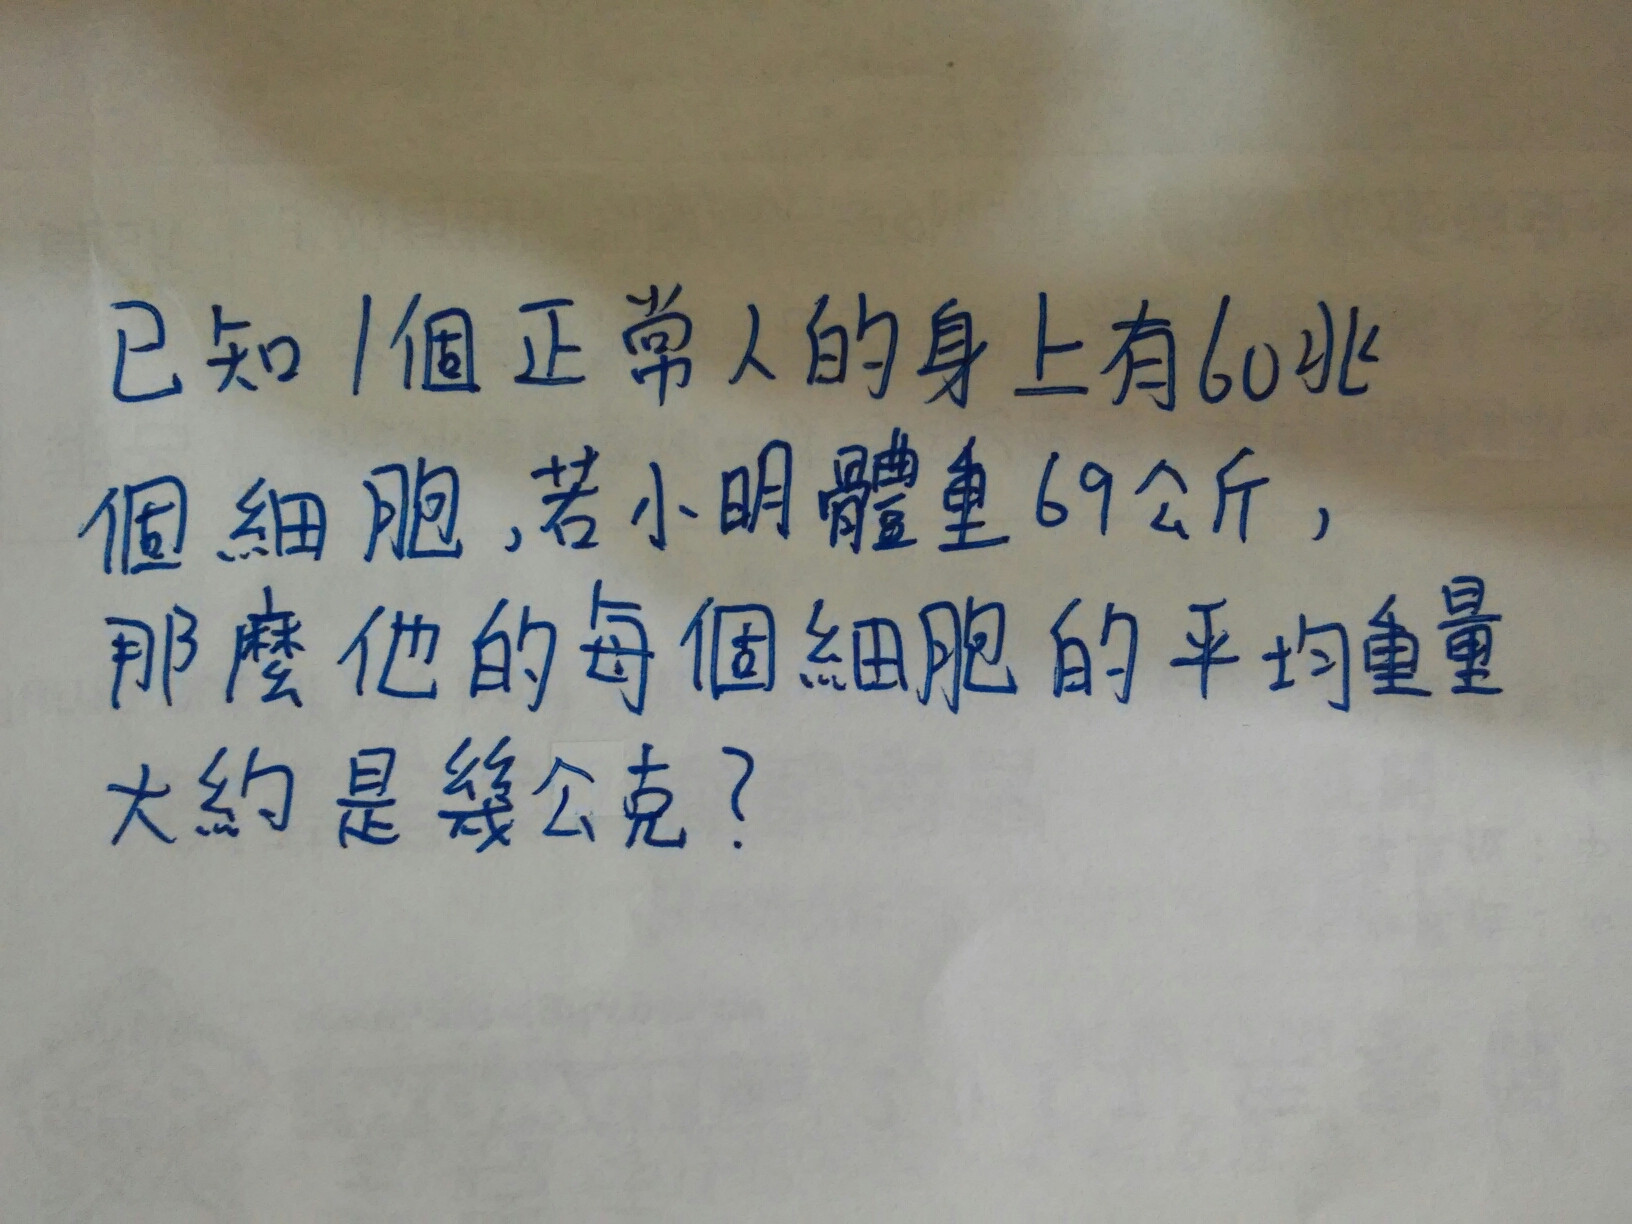 已知1個正常人的身上有60兆
個細胞,若小明體重69公斤,
那麼他的每個細胞的平均重量
大約是幾公克?